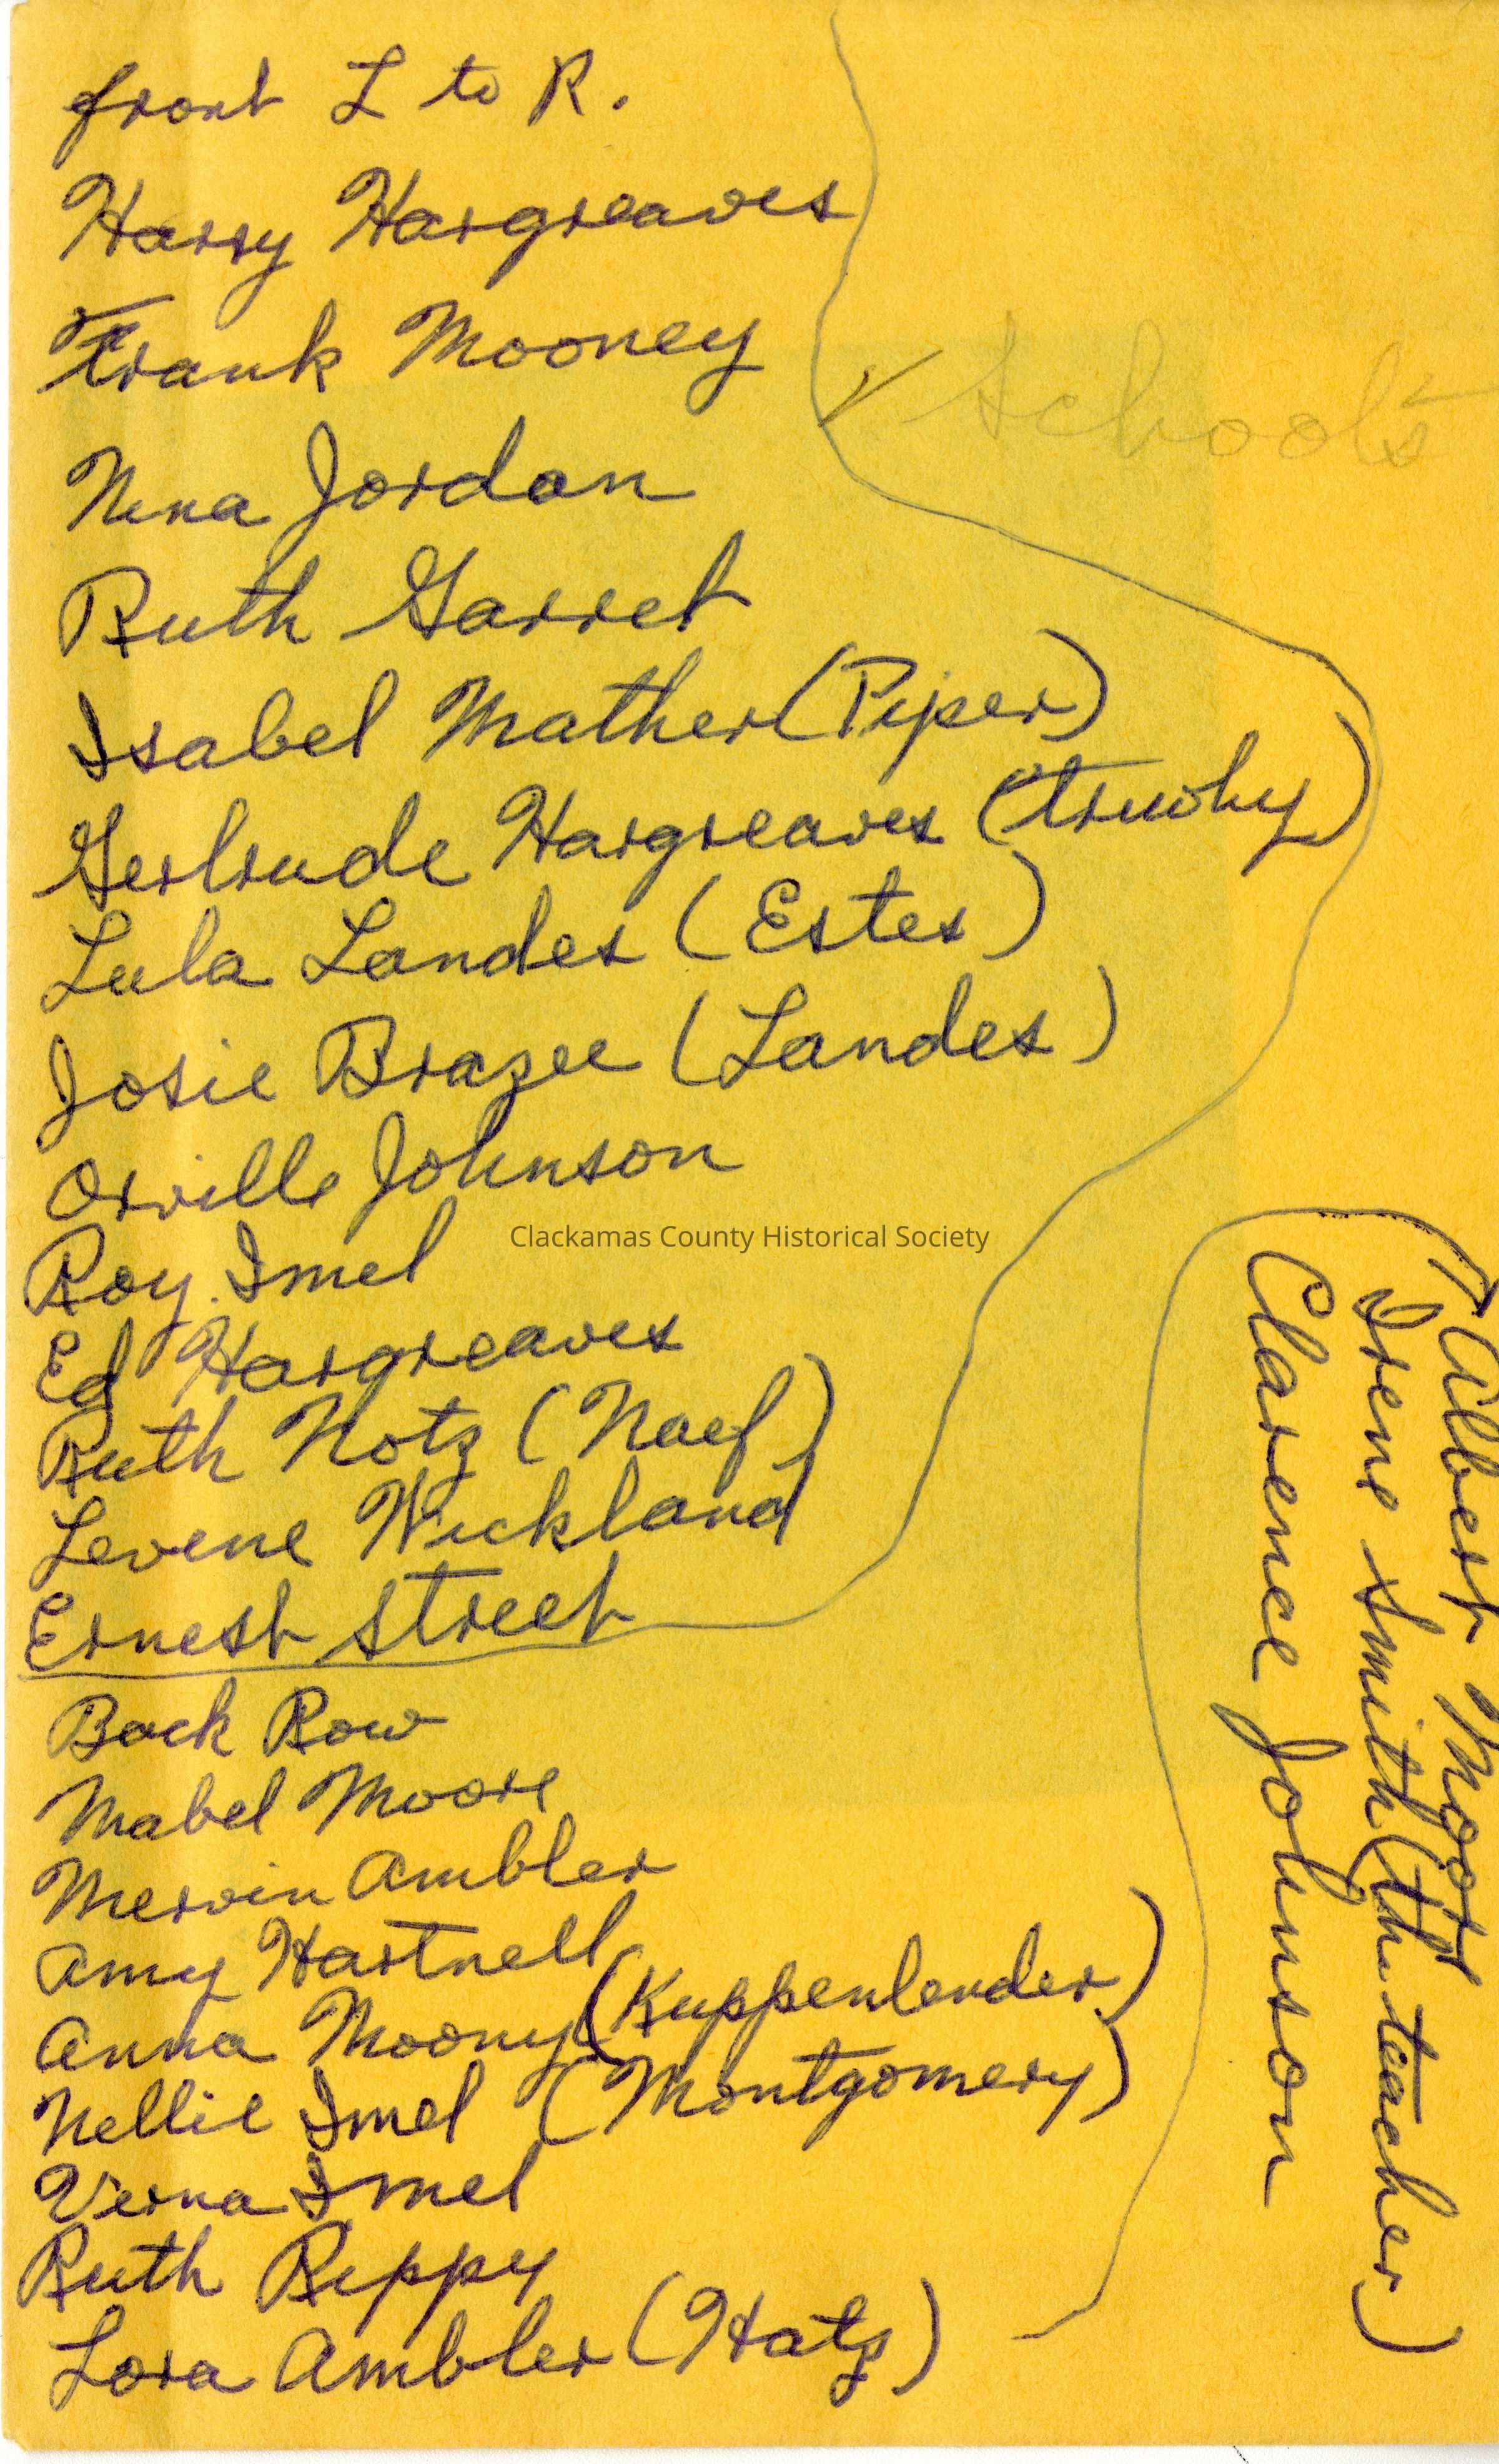 front L to R.
Harry Hargreaves
Frank Mooney
Schools
Nina Jordan
Ruth Garret
Isabel Mather (Piper)
Gertrude Hargreaves
Lula Landes (Estes)
Josie Brazee (Landes)
Orville Johnson
Roy Imel
Clackamas County Historical Society
Ed Hargreaves
Ruth Notz (Naef)
Levene Wickland
Ernest Street
Back Row
Mabel Moore
Mervin Ambler
Amy Hartnell
Anna Moony (Kuppenbender)
Nellie Imel (Montgomery)
Verna Imel
Ruth Rippy
Lora Ambler (Hatz)
Albert Moore
Irene Smith (the teacher)
Clarence Johnson